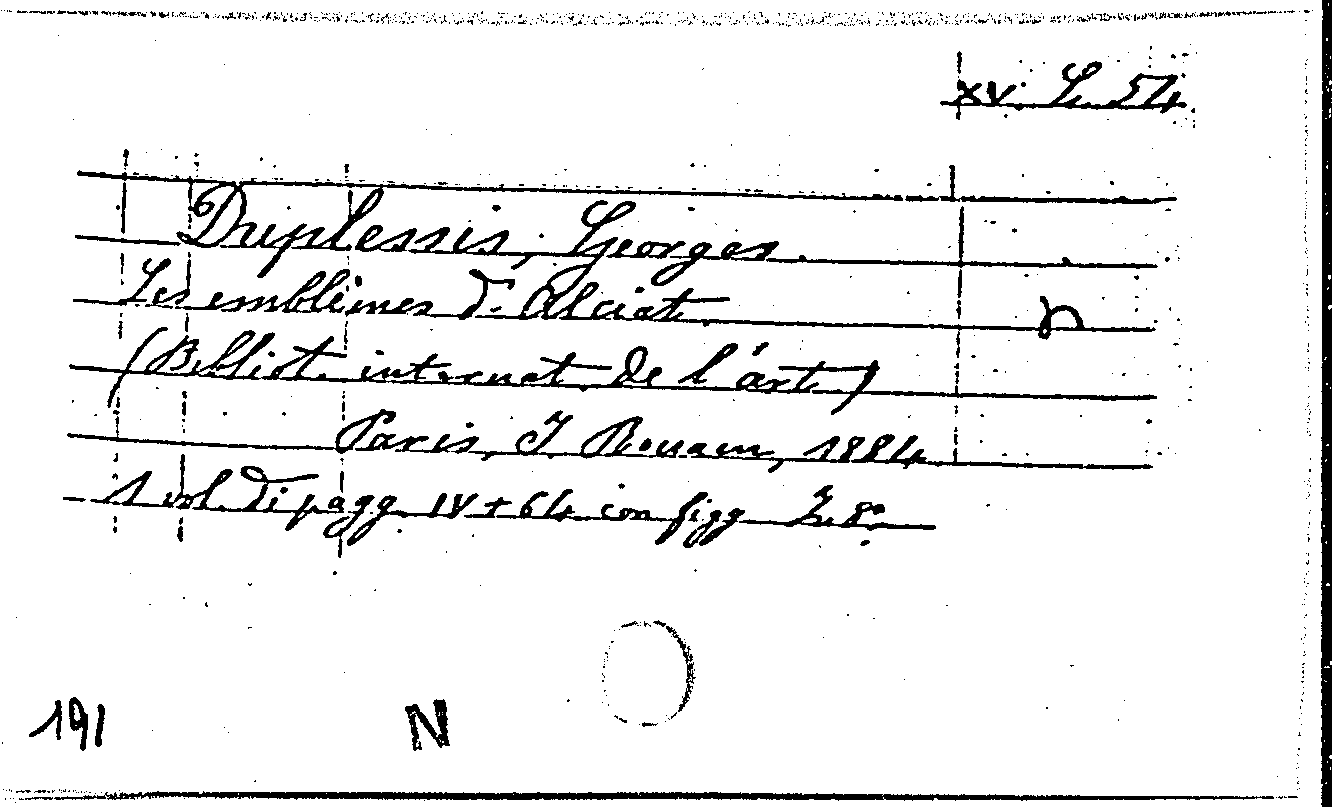 XV. L. 54
Duplessis, Georges.
Les emblèmes d'Alciat.
(Bibliot. internat. de l'art.)
Paris, J. Rouam, 1884.
1 vol. di pagg. IV + 64 con figg. In 8°.
n
191 N